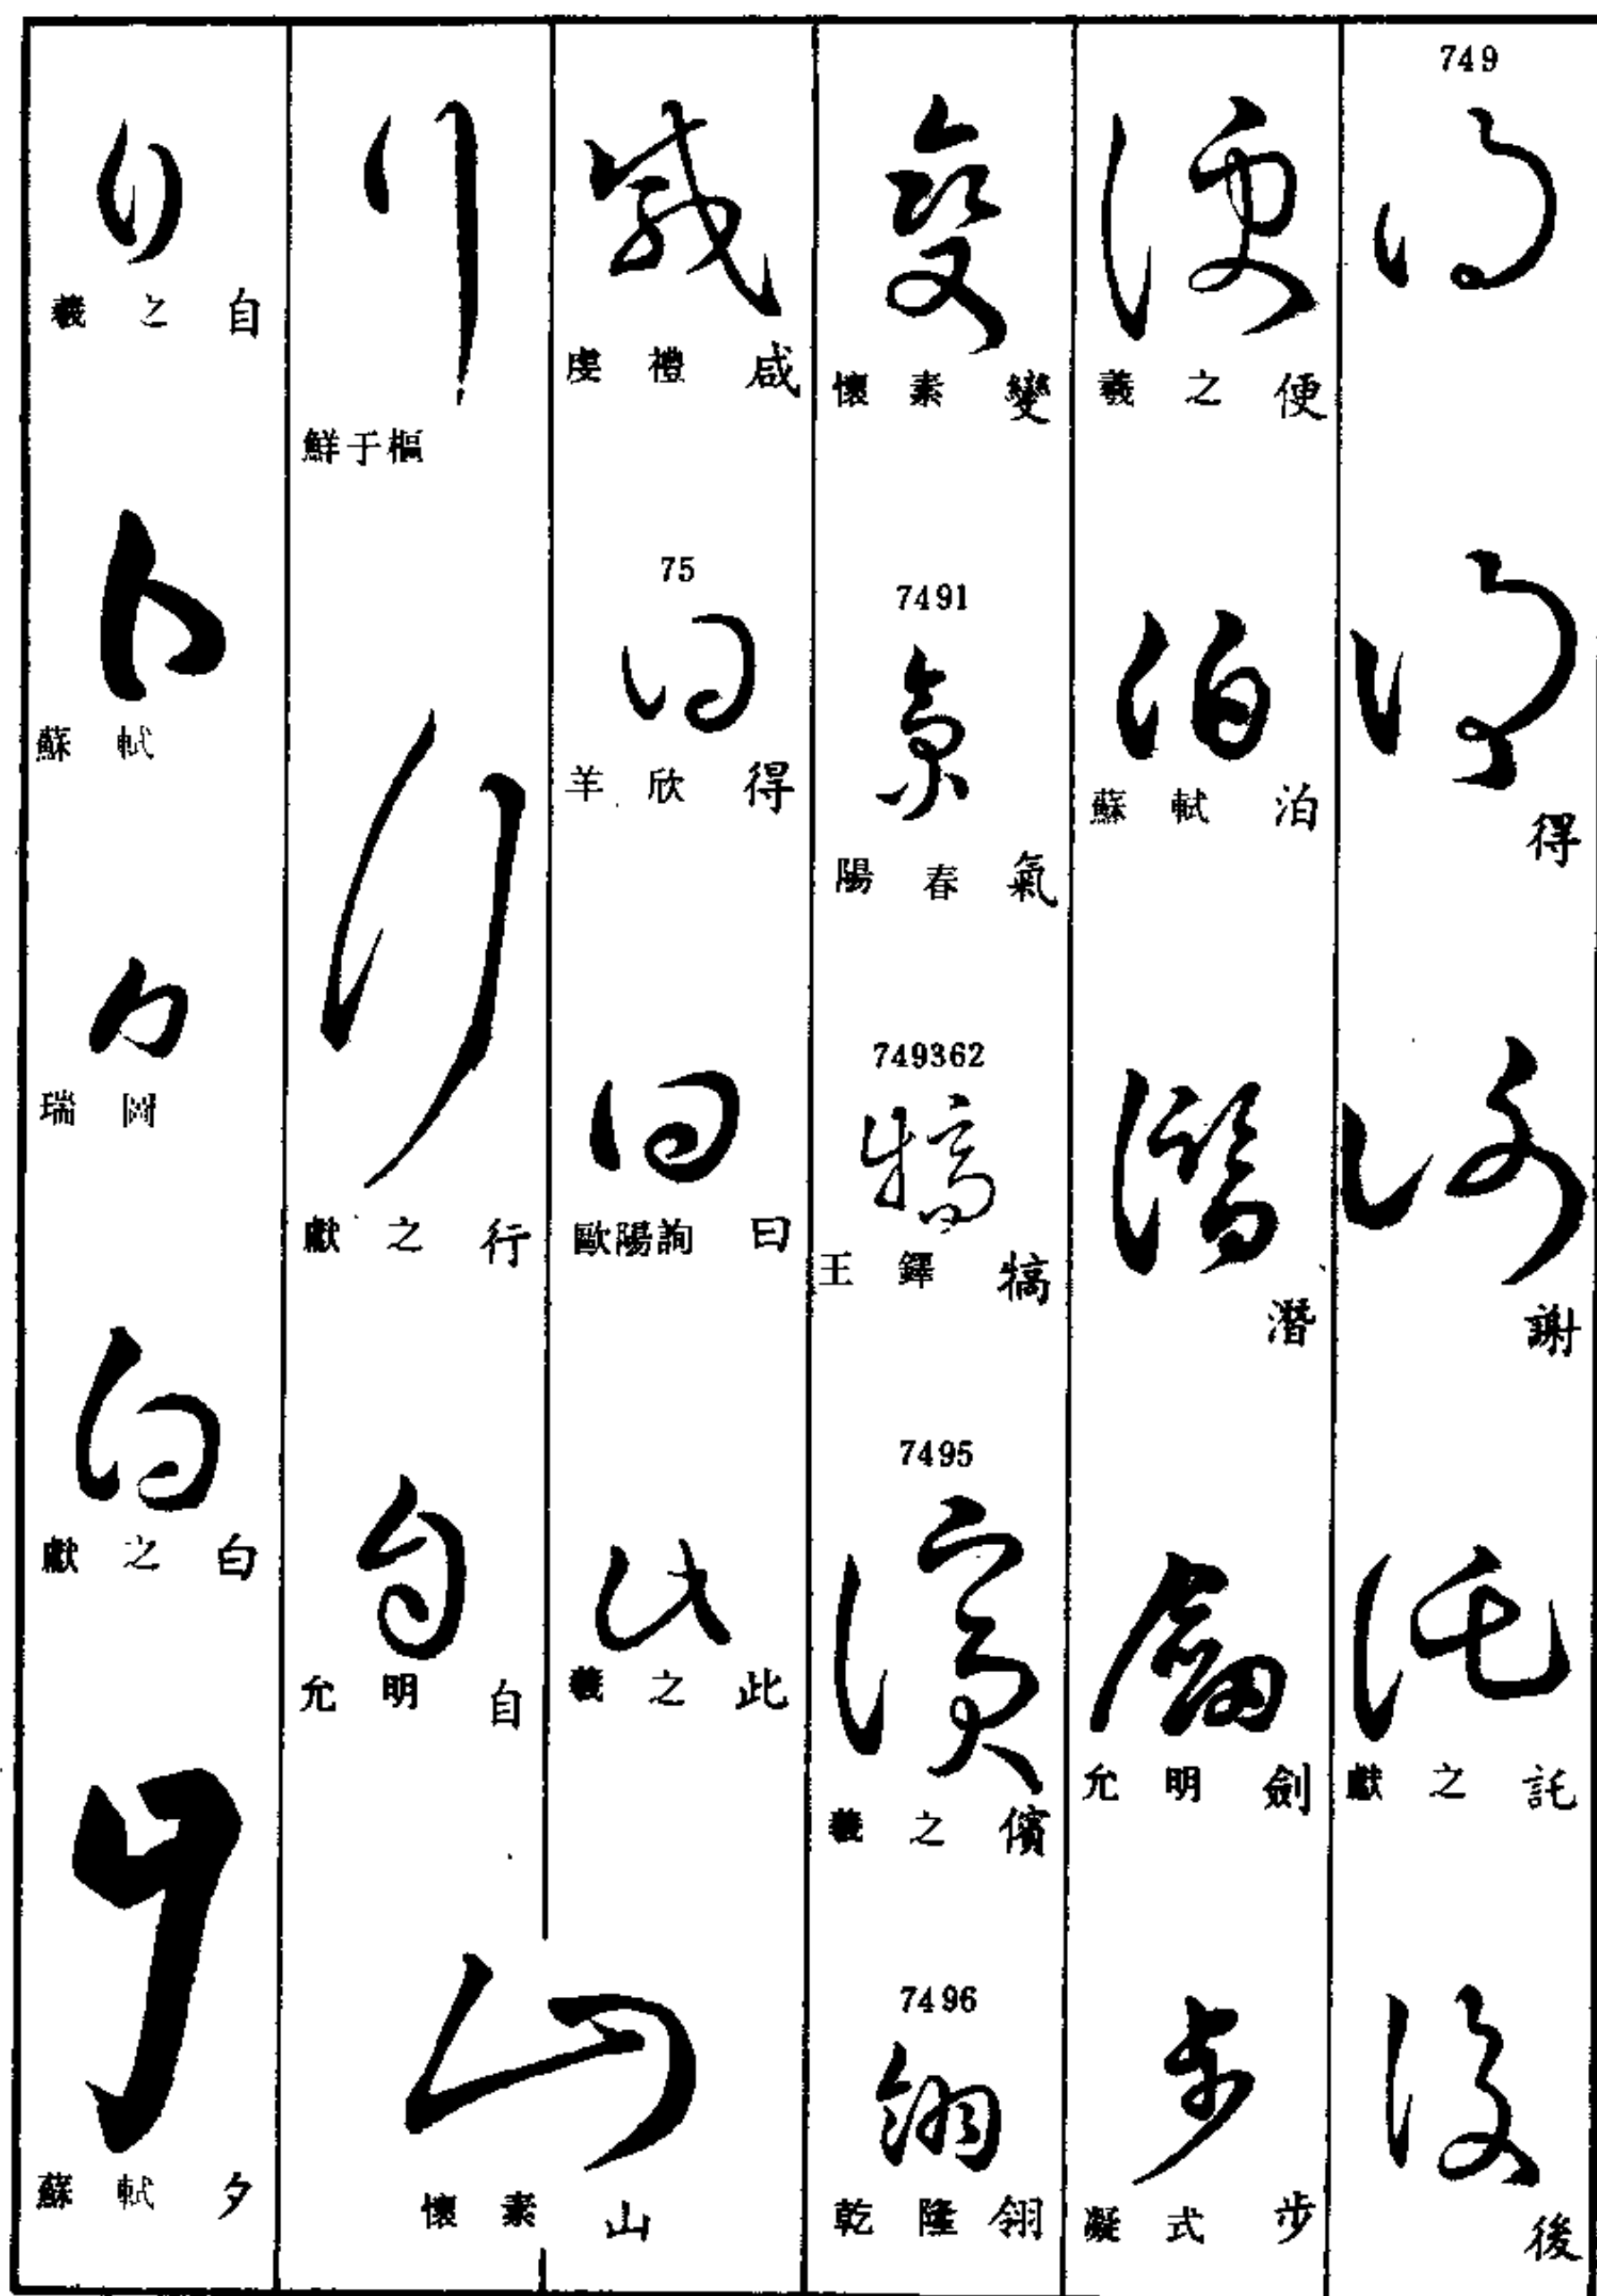 749
得
謝
獻之 託
後
羲之 便
蘇軾 泊
潛
允明 劍
凝式 步
懷素 變
7491
陽春 氣
749362
王鐸 犒
7495
羲之 儐
7496
乾隆 翎
虔禮 咸
75
羊欣 得
歐陽詢 曰
羲之 此
懷素 山
鮮于樞
獻之 行
允明 自
羲之 自
蘇軾
瑞圖
獻之 白
蘇軾 夕